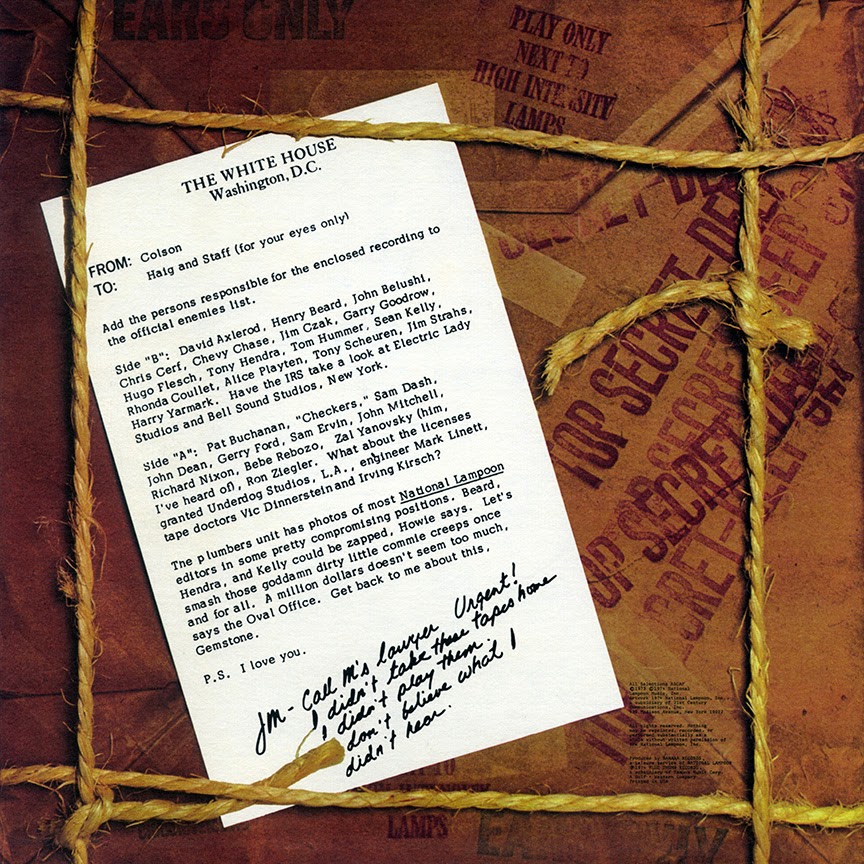 EARS ONLY
PLAY ONLY
NEXT TO
HIGH INTENSITY
LAMPS
THE WHITE HOUSE
Washington, D.C.
FROM: Colson
TO: Haig and Staff (for your eyes only)
Add the persons responsible for the enclosed recording to
the official enemies list.
Side "B": David Axlerod, Henry Beard, John Belushi,
Chris Cerf, Chevy Chase, Jim Czak, Garry Goodrow,
Hugo Flesch, Tony Hendra, Tom Hummer, Sean Kelly,
Rhonda Coullet, Alice Playten, Tony Scheuren, Jim Strahs,
Harry Yarmark. Have the IRS take a look at Electric Lady
Studios and Bell Sound Studios, New York.
Side "A": Pat Buchanan, "Checkers," Sam Dash,
John Dean, Gerry Ford, Sam Ervin, John Mitchell,
Richard Nixon, Bebe Rebozo, Zal Yanovsky (him,
I've heard of), Ron Ziegler. What about the licenses
granted Underdog Studios, L.A., engineer Mark Linett,
tape doctors Vic Dinnerstein and Irving Kirsch?
The plumbers unit has photos of most National Lampoon
editors in some pretty compromising positions. Beard,
Hendra, and Kelly could be zapped, Howie says. Let's
smash those goddamn dirty little commie creeps once
and for all. A million dollars doesn't seem too much,
says the Oval Office. Get back to me about this,
Gemstone.
P.S. I love you.
JM - Call M's lawyer Urgent!
I didn't take these tapes home
I didn't play them.
I don't believe what I
didn't hear.
TOP SECRET-DEEP
TOP SECRET
LAMPS
All Selections ASCAP